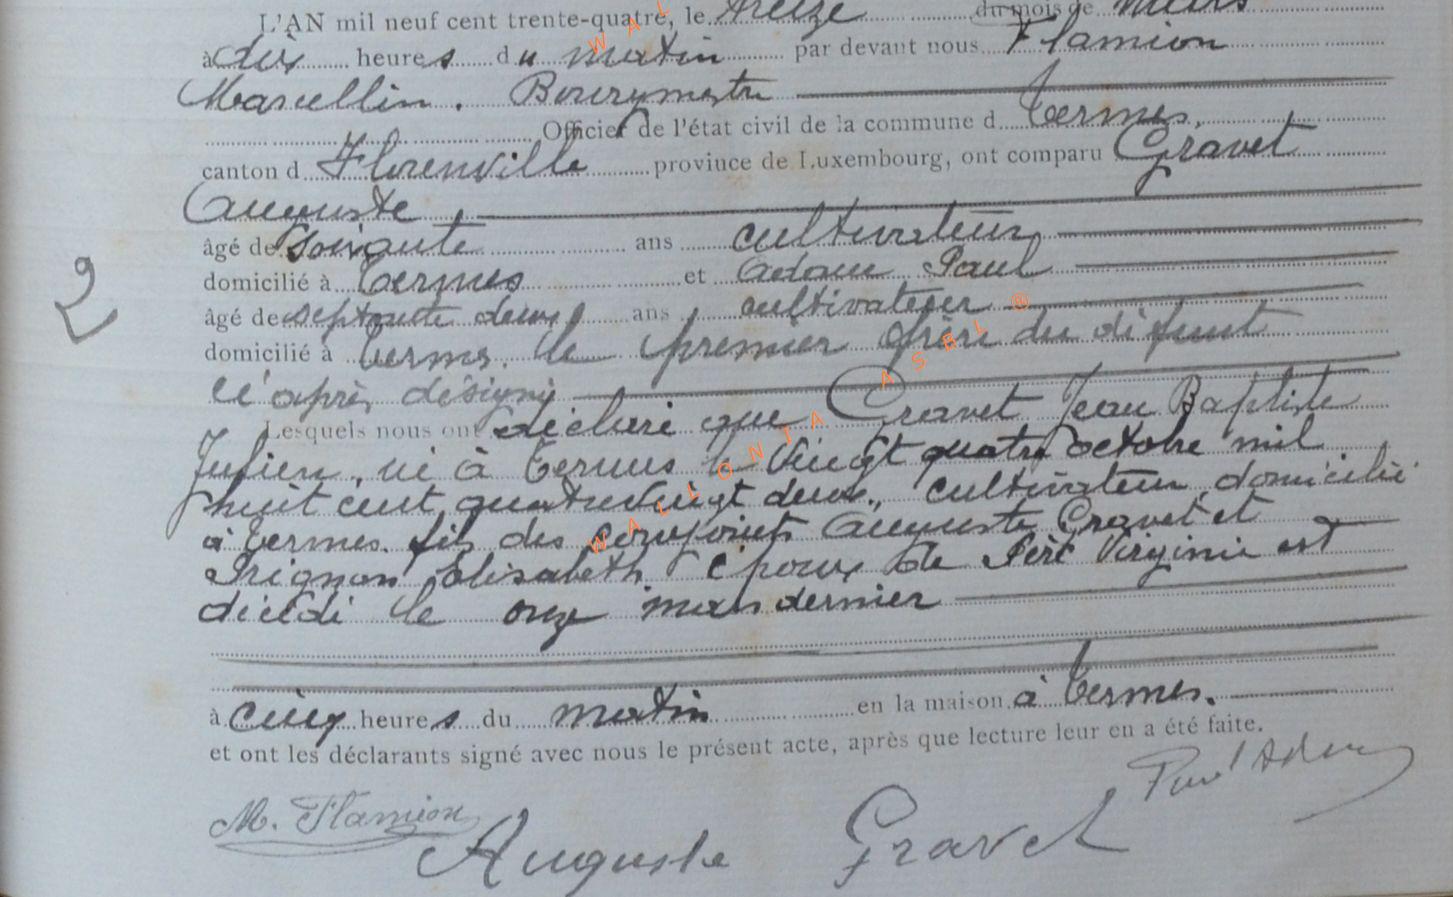 L'AN mil neuf cent trente-quatre, le treize du mois de mars
à dix heures du matin par devant nous Flamion
Marcellin. Bourgmestre
Officier de l'état civil de la commune d Termes,
canton d Florenville province de Luxembourg, ont comparu Gravet
Auguste
âgé de soixante ans cultivateur
domicilié à Termes et Adam Paul
âgé de septante deux ans cultivateur
domicilié à Termes. le premier frère du défunt
ci après désigné
Lesquels nous ont déclaré que Gravet Jean Baptiste
Julien, né à Termes le vingt quatre octobre mil
huit cent quatrevingt deux, cultivateur, domicilié
à Termes. fils des conjoints Auguste Gravet et
Prignon Elisabeth époux de Virginie est
décédé le onze mars dernier
à cinq heures du matin en la maison à Termes.
et ont les déclarants signé avec nous le présent acte, après que lecture leur en a été faite.
M. Flamion
Auguste Gravet
Paul Adam
2
WALLONIA ASBL ®
WAL